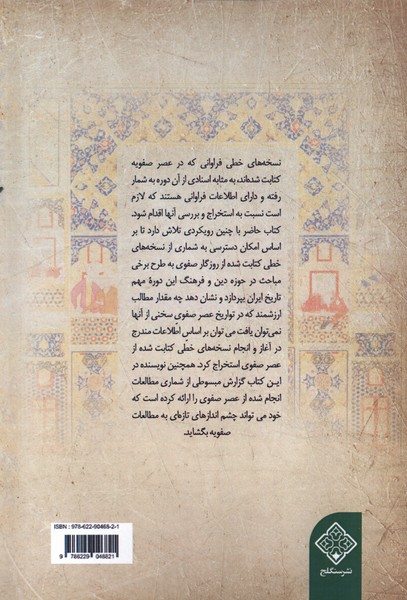 نسخه‌های خطی فراوانی که در عصر صفویه
کتابت شده‌اند، به مثابه اسنادی از آن دوره به شمار
رفته و دارای اطلاعات فراوانی هستند که لازم
است نسبت به استخراج و بررسی آنها اقدام شود.
کتاب حاضر با چنین رویکردی تلاش دارد تا بر
اساس امکان دسترسی به شماری از نسخه‌های
خطی کتابت شده از روزگار صفوی به طرح برخی
مباحث در حوزه دین و فرهنگ این دورۀ مهم
تاریخ ایران بپردازد و نشان دهد چه مقدار مطالب
ارزشمند که در تواریخ عصر صفوی سخنی از آنها
نمی‌توان یافت می توان بر اساس اطلاعات مندرج
در آغاز و انجام نسخه‌های خطی کتابت شده از
عصر صفوی استخراج کرد. همچنین نویسنده در
این کتاب گزارش مبسوطی از شماری مطالعات
انجام شده از عصر صفوی را ارائه کرده است که
خود می تواند چشم اندازهای تازه‌ای به مطالعات
صفویه بگشاید.
ISBN : 978-622-90468-2-1
9 786229 046821
نشر سنگلج